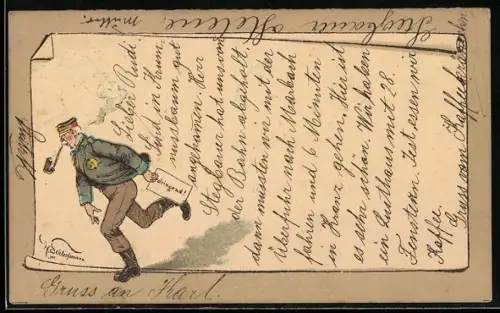 Lieber Rudi!
Sind in Krumm
nussbaum gut
angekommen. Herr
Stegbauer hat uns von
der Bahn abgeholt,
dann mussten wir mit der
Überfuhr nach Marbach
fahren und 6 Minuten
in Kranz gehen. Hier ist
es sehr schön. Wir haben
ein Lusthaus mit 28
Fenstern. Jetzt essen wir
Kaffee.
Gruss vom
Stegbauer Helene
Mutter.
Willy
Dringend!
Gruss an Karl.